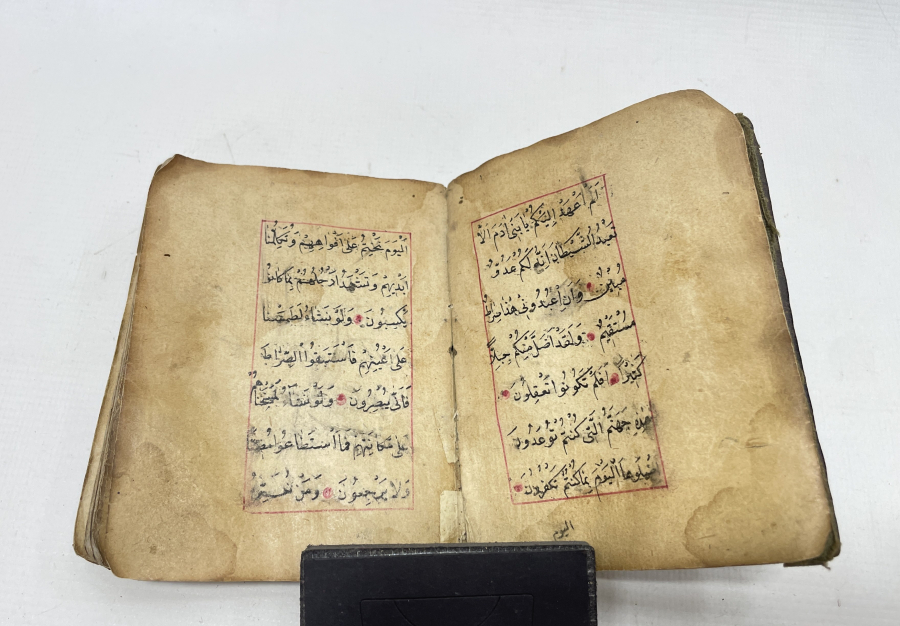 لَمْ أَعْهَدْ إِلَيْكُمْ يَا بَنِي آدَمَ الَّا
تَعْبُدُ الشَّيْطَانَ اِنَّهُ لَكُمْ عَدُوٌّ
مُبِينٌ وَاَنِ اعْبُدُونِي هٰذَا صِرَاطٌ
مُسْتَقِيمٌ وَلَقَدْ اَضَلَّ مِنْكُمْ جِبِلًّا
كَثِيرًا اَفَلَمْ تَكُونُوا تَعْقِلُونَ
هٰذِهِ جَهَنَّمُ الَّتِي كُنْتُمْ تُوعَدُونَ
اِصْلَوْهَا الْيَوْمَ بِمَا كُنْتُمْ تَكْفُرُونَ
اليوم
اَلْيَوْمَ نَخْتِمُ عَلَى اَفْوَاهِهِمْ وَتُكَلِّمُنَا
اَيْدِيهِمْ وَتَشْهَدُ اَرْجُلُهُمْ بِمَا كَانُوا
يَكْسِبُونَ وَلَوْ نَشَاءُ لَطَمَسْنَا
عَلَى اَعْيُنِهِمْ فَاسْتَبَقُوا الصِّرَاطَ
فَاَنَّى يُبْصِرُونَ وَلَوْ نَشَاءُ لَمَسَخْنَاهُمْ
عَلَى مَكَانَتِهِمْ فَمَا اسْتَطَاعُوا مُضِيًّا
وَلَا يَرْجِعُونَ وَمَنْ نُعَمِّرْهُ